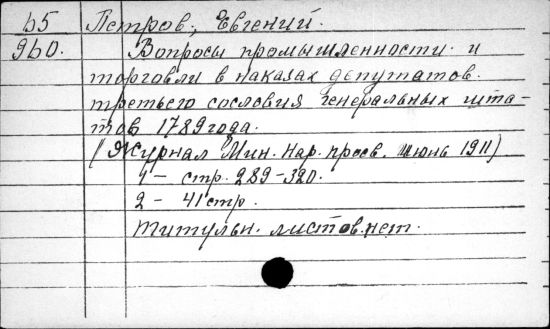 б5 Петров, Евгений.
960. Вопросы промышленности и
торговли в наказах депутатов
третьего сословия генеральных шта-
тов 1789 года.
(Журнал Мин. Нар. просв. июнь 1911)
1 – стр. 289–320.
2 – 41 стр.
Титульн. листов нет.